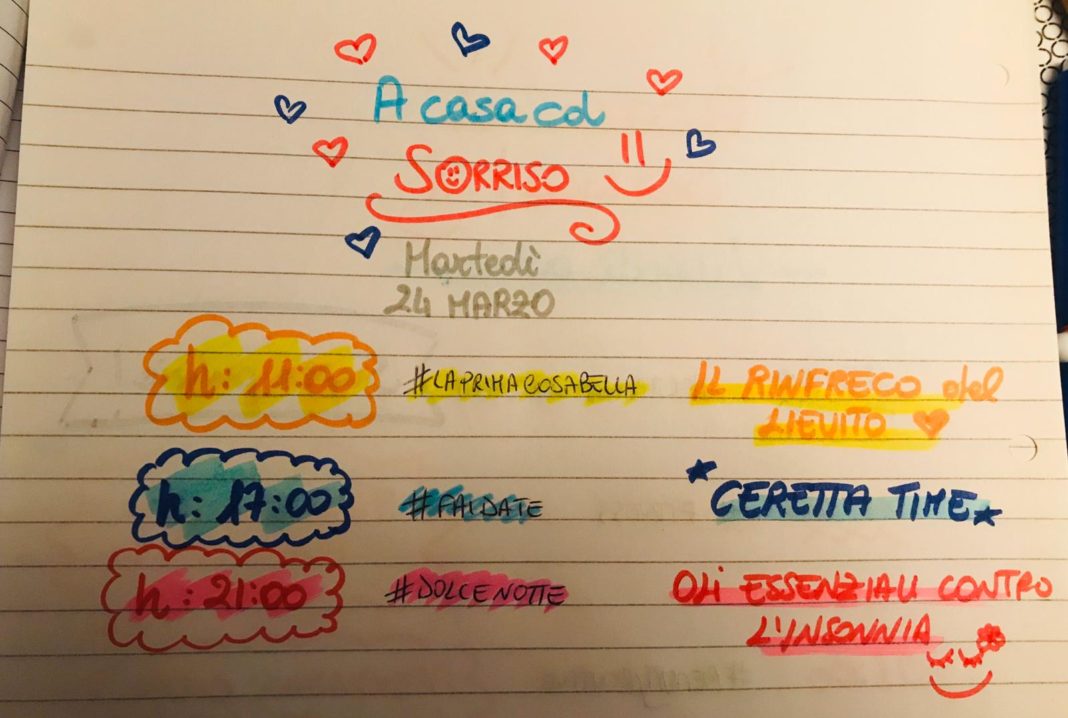 A casa col
SORRISO
Martedì
24 MARZO
h: 11:00 #LAPRIMACOSABELLA IL RINFRECO del
LIEVITO
h: 17:00 #FAIDATE CERETTA TIME
h: 21:00 #DOLCENOTTE OLI ESSENZIALI CONTRO
L'INSONNIA